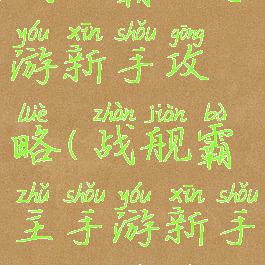 yóu xīn shǒu gōng
游新手攻
lüè zhàn jiàn bà
略(战舰霸
zhǔ shǒu yóu xīn shǒu
主手游新手